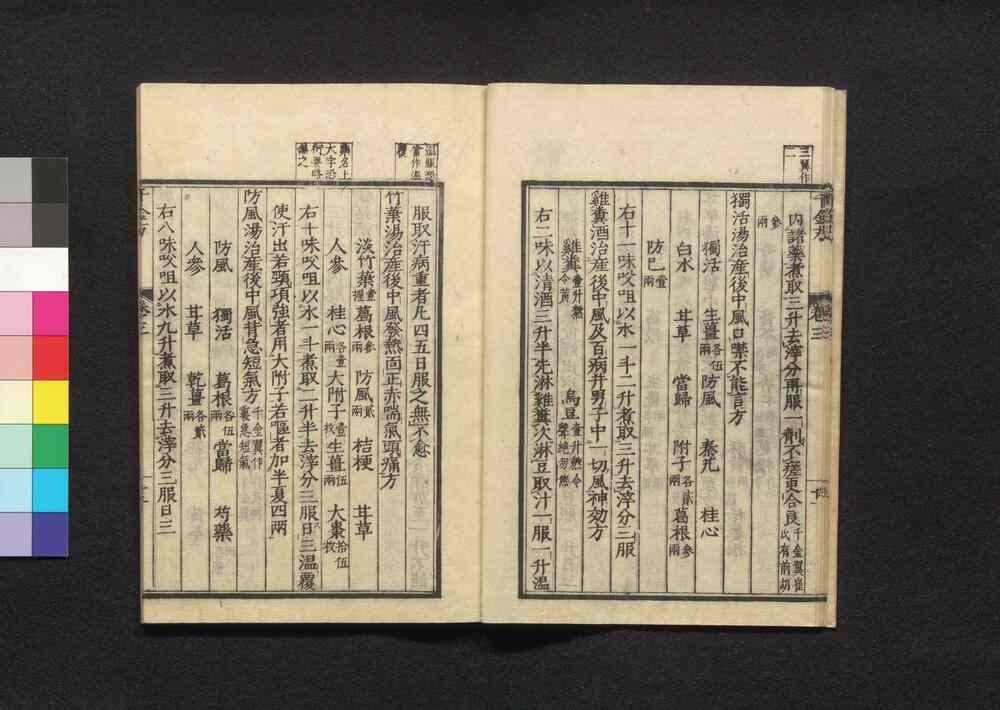 三翼作二
內諸藥煮取三升去滓分再服一劑不瘥更合良千金翼崔氏有前胡
參兩
獨活湯治產後中風口噤不能言方
獨活 生薑各伍兩 防風 秦艽 桂心
白朮 甘草 當歸 附子各貳兩 葛根參兩
防己壹兩
右十一味㕮咀以水一斗二升煮取三升去滓分三服
雞糞酒治產後中風及百病并男子中一切風神効方
雞糞壹升熬令黃 烏豆壹升熬令聲絕勿焦
右二味以清酒三升半先淋雞糞次淋豆取汁一服一升溫
卷三
服取汗病重者凡四五日服之無不愈
竹葉湯治產後中風發熱面正赤喘氣頭痛方
淡竹葉壹握 葛根參兩 防風貳兩 桔梗 甘草
人參 桂心各壹兩 大附子壹枚 生薑伍兩 大棗拾伍枚
右十味㕮咀以水一斗煮取二升半去滓分三服日三溫覆
使汗出若頸項強者用大附子若嘔者加半夏四兩
防風湯治產後中風背急短氣方千金翼作裏急短氣
防風 獨活 葛根各伍兩 當歸 芍藥
人參 甘草 乾薑各貳兩
右八味㕮咀以水九升煮取三升去滓分三服日三
卷三